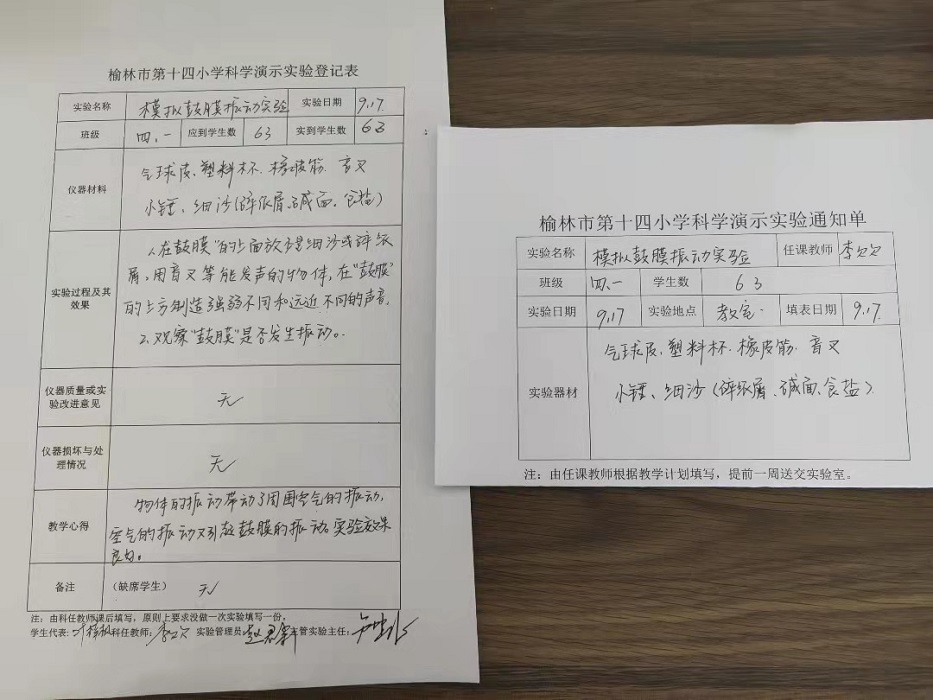 榆林市第十四小学科学演示实验登记表
实验名称 模拟鼓膜振动实验 实验日期 9.17
班级 四.一 应到学生数 63 实到学生数 63
仪器材料
气球皮、塑料杯、橡皮筋、音叉
小锤、细沙(碎纸屑、碱面、食盐)
实验过程及其
效果
1、在"鼓膜"的上面放多量细沙或碎纸
屑,用音叉等能发声的物体,在"鼓膜"
的上方制造强弱不同和远近不同的声音.
2、观察"鼓膜"是否发生振动。
仪器质量或实
验改进意见
无
仪器损坏与处
理情况
无
教学心得
物体的振动带动了周围空气的振动,
空气的振动又引起鼓膜的振动。实验效果
良好。
备注 (缺席学生) 无
注:由科任教师课后填写,原则上要求没做一次实验填写一份。
学生代表: 科任教师: 实验管理员: 主管实验主任:
榆林市第十四小学科学演示实验通知单
实验名称 模拟鼓膜振动实验 任课教师
班级 四.一 学生数 63
实验日期 9.17 实验地点 教室 填表日期 9.17.
实验器材
气球皮、塑料杯、橡皮筋、音叉
小锤、细沙(碎纸屑、碱面、食盐)
注:由任课教师根据教学计划填写,提前一周送交实验室。